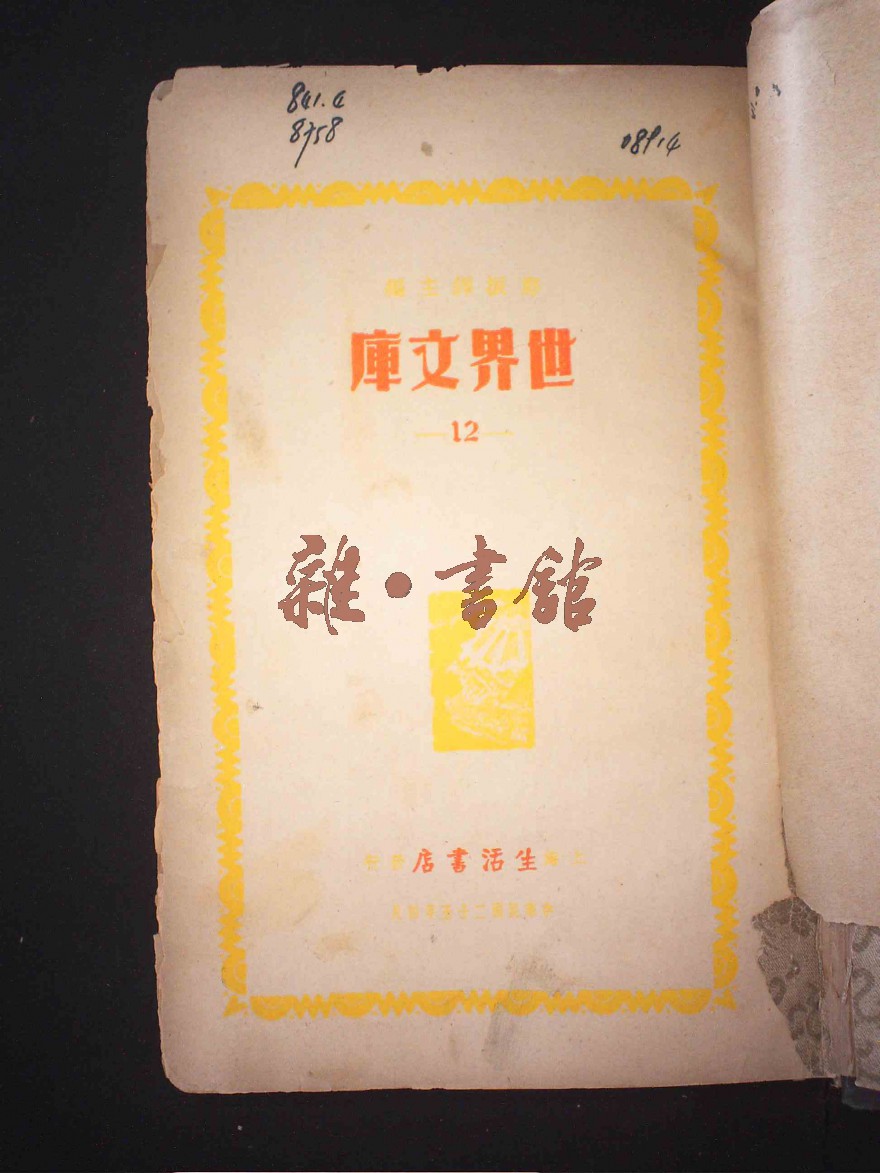 8758
鄭振鐸主編
世界文庫
—12—
雜•書館
上海生活書店發行
中華民國二十五年